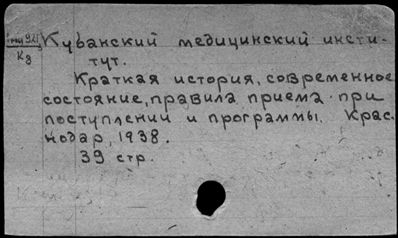 Кубанский медицинский инсти-
К9
тут.
Краткая история, современное
состояние, правила приема при
поступлении и программы. Крас-
нодар, 1938.
39 стр.